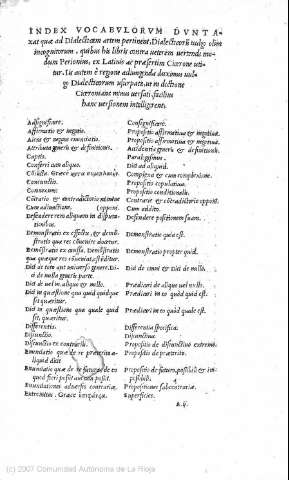 INDEX VOCABVLORVM DVNTA-
xat quæ ad Dialecticam artem pertinent, Dialecticis vulgo olim
incognitorum, quibus his libris contra veterem vertendi mo-
dum Perionius, ex Latinis ac præsertim Cicerone uti-
tur. Iis autem è regione adiungenda duximus vul-
gi Dialecticorum usurpata, ut in dictione
Ciceroniana minus versati facilius
hanc versionem intelligerent.
Adsignificare. Consignificare.
Affirmatio & negatio. Propositio affirmatiua & negatiua.
Aiens & negans enunciatio. Propositio affirmatiua & negatiua.
Attributa generis & definitionis. Accidentia generis & definitionis.
Captio. Paralogismus.
Conferri cum aliquo. Dici ad aliquid.
Complexio & cum complexione.
Coniunctio. Propositio copulatiua.
Connexum. Propositio conditionalis.
Cōtrariæ & cōtradictoriè opposit.
Cum adiunctione. Cum addito.
Defendere rem aliquam in disputa-
tionibus. Defendere positionem suam.
Demonstratio ex effectis, & demõ-
stratio quæ res cōuenire docetur. Demonstratio quia est.
Demonstratio ex causis. Demōstratio
qua quæ res cōueniat ostēditur. Demonstratio propter quid.
Dici de toto aut vniuerso genere. Di-
ci de nulla generis parte. Dici de omni & dici de nullo.
Dici de vel in aliquo & nullo. Prædicari de aliquo vel nullo.
Dici in quæstione quid quid quidque
sit quæritur. Prædicari in eo quod quid est.
Dici in quæstione qua quale quid
sit, quæritur. Prædicari in eo quod quale est.
Differentia. Differentia specifica.
Disiunctio. Disiunctiua.
Disiunctio ex contrariis. Propositio de disiunctiuo extremo.
Enuntiatio quæ de re præterita
aliquid dicit Propositio de præterito.
Enuntiatio quæ de re futura & ex
quod fieri possit aut non possit. Propositio de futuro, possibili & im-
possibili.
Enuntiationes aduersæ contrariæ. Propositiones subcontrariæ.
Extremitas. Græcè Superficies.
A.ij.
(c) 2007 Comunidad Autónoma de La Rioja